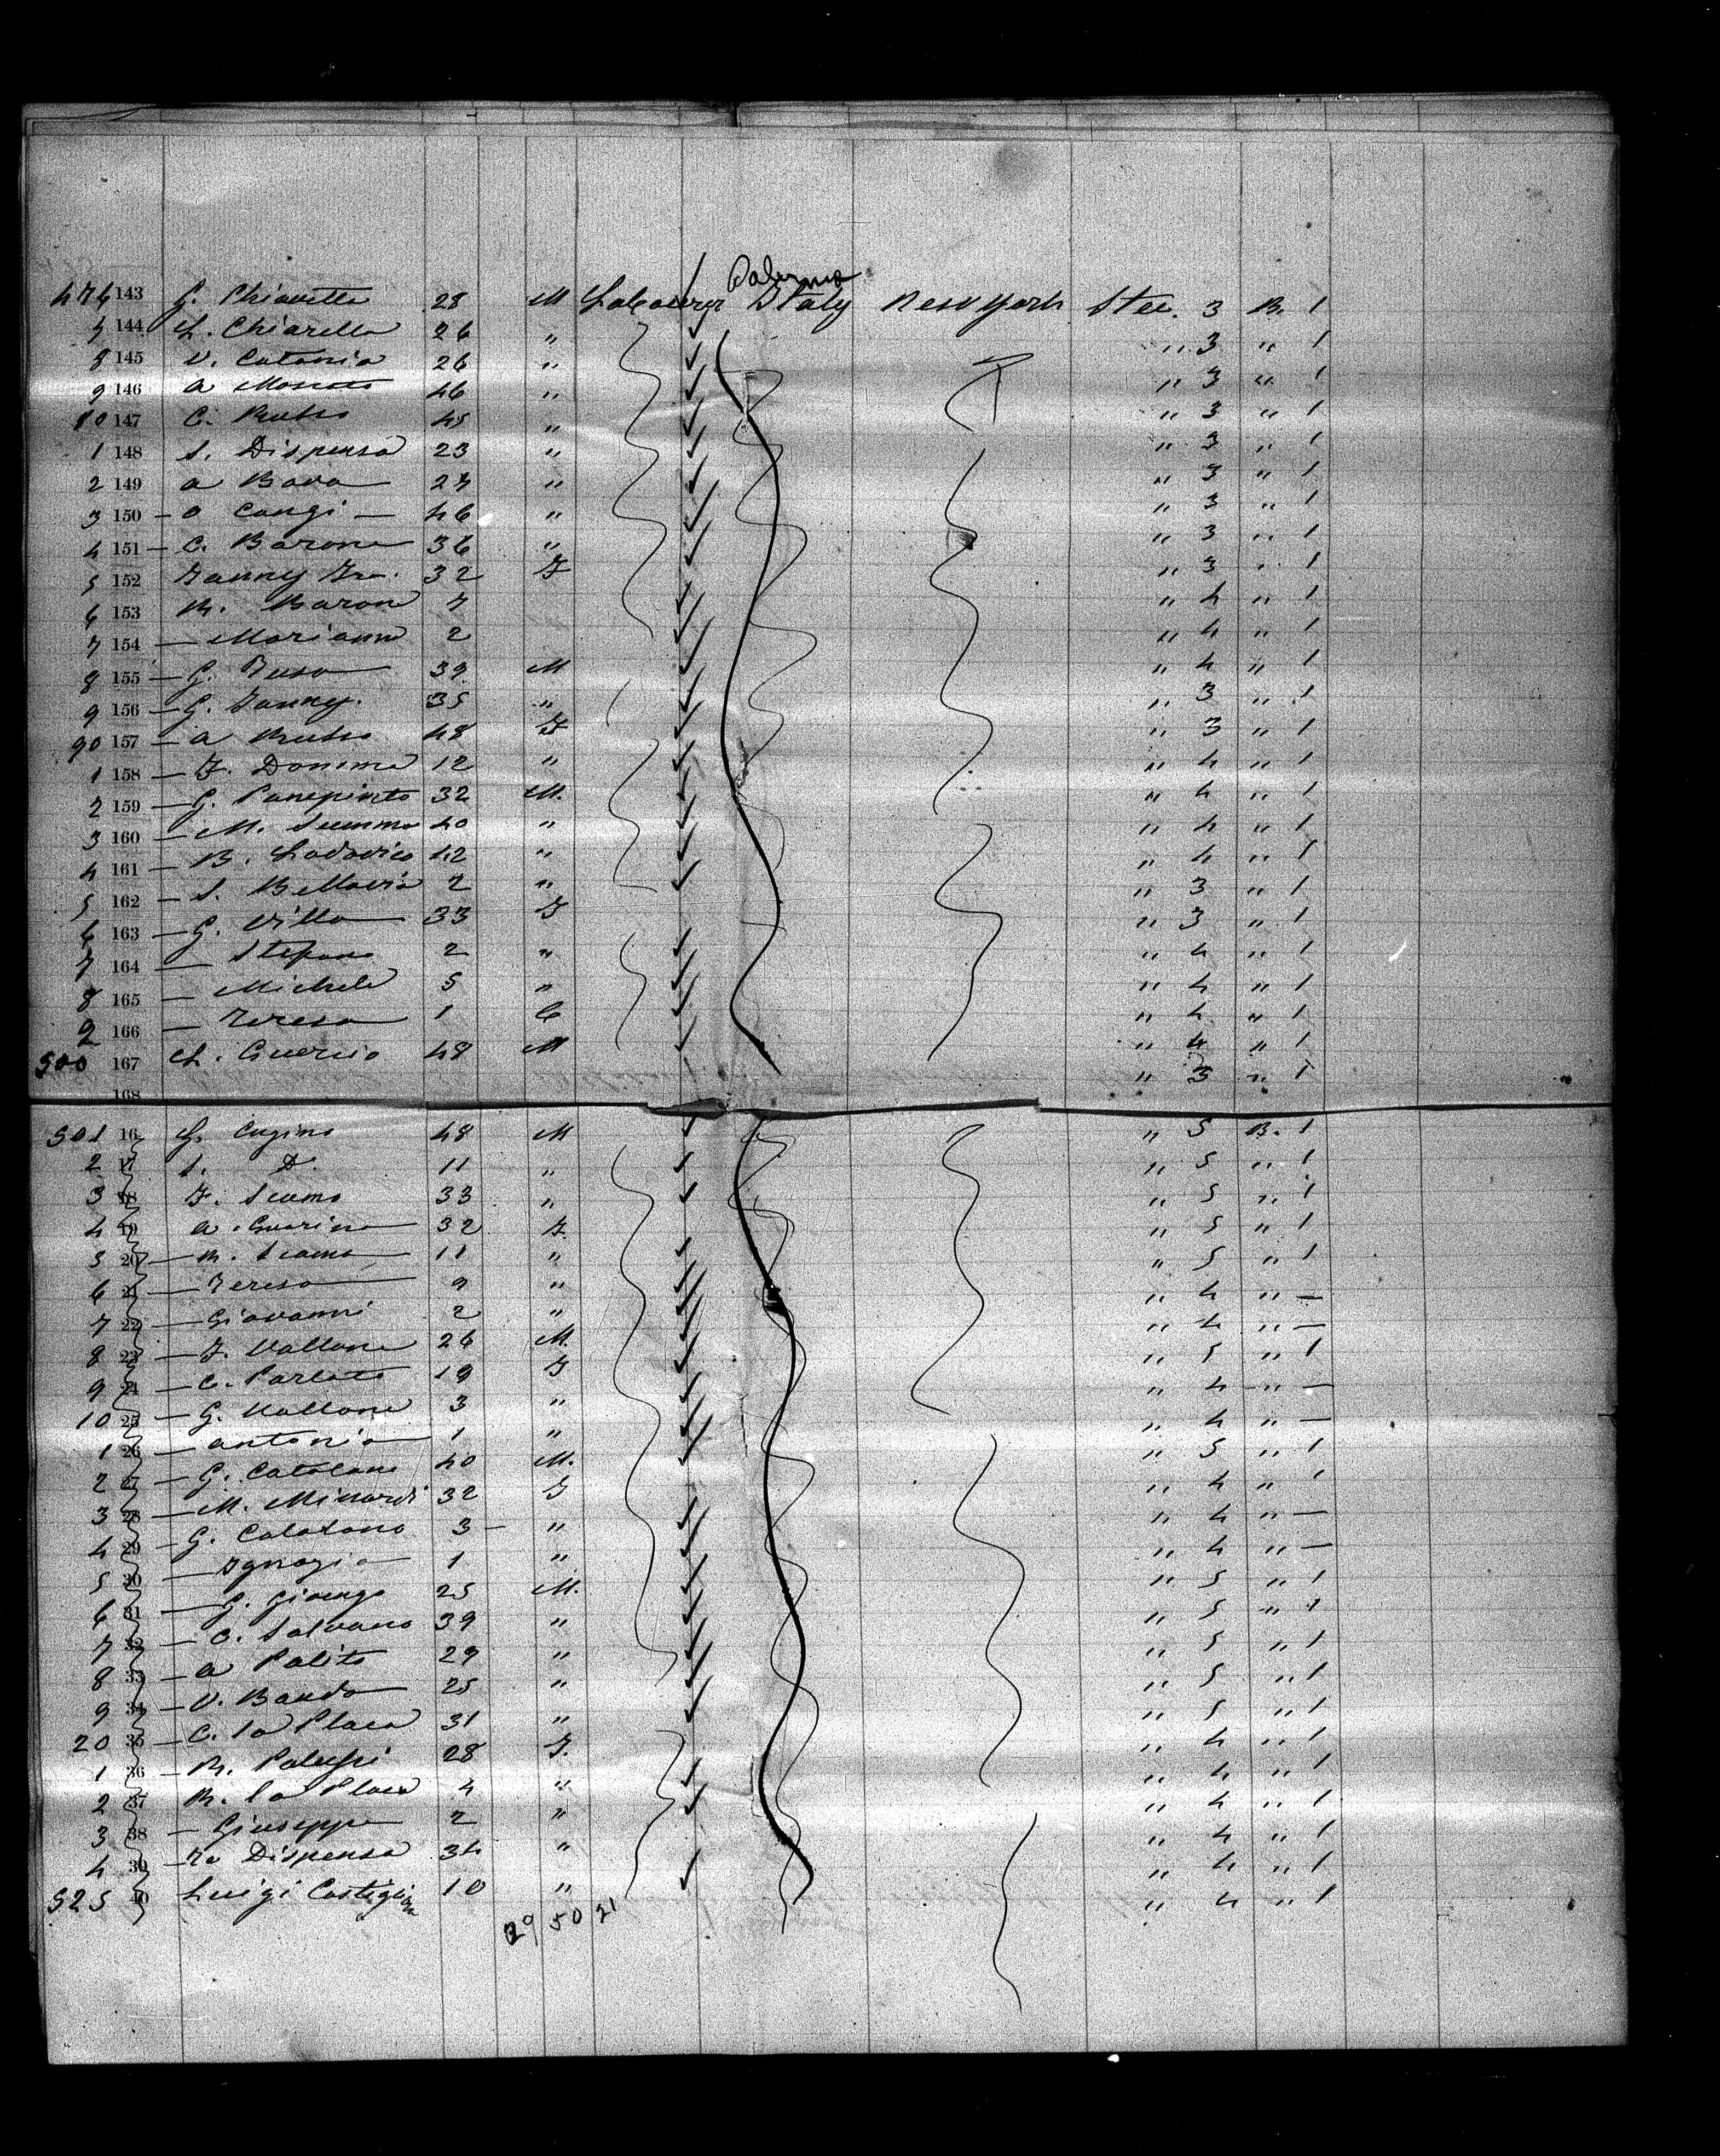 Palermo
476 143 G. Chiavetta 28 M Labourer Italy New York Stee. 3 B. 1
7 144 L. Chiarella 26 " " 3 " 1
8 145 V. Catania 26 " " 3 " 1
9 146 a 46 " " 3 " 1
10 147 C. Russo 45 " " 3 " 1
1 148 S. Dispensa 23 " " 3 " 1
2 149 a Bava 27 " " 3 " 1
3 150 - o Cangi - 46 " " 3 " 1
4 151 - C. Barone 36 " " 3 " 1
5 152 32 F " 4 " 1
6 153 M. Barone 7 " 4 " 1
7 154 - Marianna 2 " 4 " 1
8 155 - G. 39 M " 3 " 1
9 156 - G. 35 " " 3 " 1
90 157 - a Russo 48 F " 4 " 1
1 158 - F. 12 " " 4 " 1
2 159 - G. Panepinto 32 M. " 4 " 1
3 160 - M. 40 " " 4 " 1
4 161 - B. Lodovico 42 " " 3 " 1
5 162 - S. Bellavia 2 " " 3 " 1
6 163 - G. Villa 33 F " 4 " 1
7 164 - Stefano 2 " " 4 " 1
8 165 - Michele 5 " " 4 " 1
9 166 - Teresa 1 " 4 " 1
500 167 L. Guercio 48 M " 3 " 1
168
501 16 G. Cugino 48 M " 5 B. 1
2 17 S. D. 11 " " 5 " 1
3 18 F. Scuma 33 " " 5 " 1
4 19 a. Guarino 32 F. " 5 " 1
5 20 - M. Scuma 11 " " 5 " 1
6 21 - Teresa 9 " " 4 " -
7 22 - Giovanni 2 " " 4 " -
8 23 - F. Vallone 26 M. " 5 " 1
9 24 - C. Parlato 19 F " 4 " -
10 25 - G. Vallone 3 " " 4 " -
1 26 - antonia 1 " " 5 " 1
2 27 - G. Catalano 40 M. " 4 " 1
3 28 - M. Minardi 32 F " 4 " -
4 29 - G. Catalano 3 - " " 4 " -
5 30 - Ignazio 1 " " 5 " 1
6 31 - G. 25 M. " 5 " 1
7 32 - C. Salvano 39 " " 5 " 1
8 33 - a Polito 29 " " 5 " 1
9 34 - V. Banda 25 " " 5 " 1
20 35 - C. la Placa 31 " " 4 " 1
1 36 - M. 28 F. " 4 " 1
2 37 M. la Placa 4 " " 4 " 1
3 38 - Giuseppe 2 " " 4 " 1
4 39 - Dispensa 34 " " 4 " 1
525 40 Luigi 10 " " 4 " 1
29 50 21